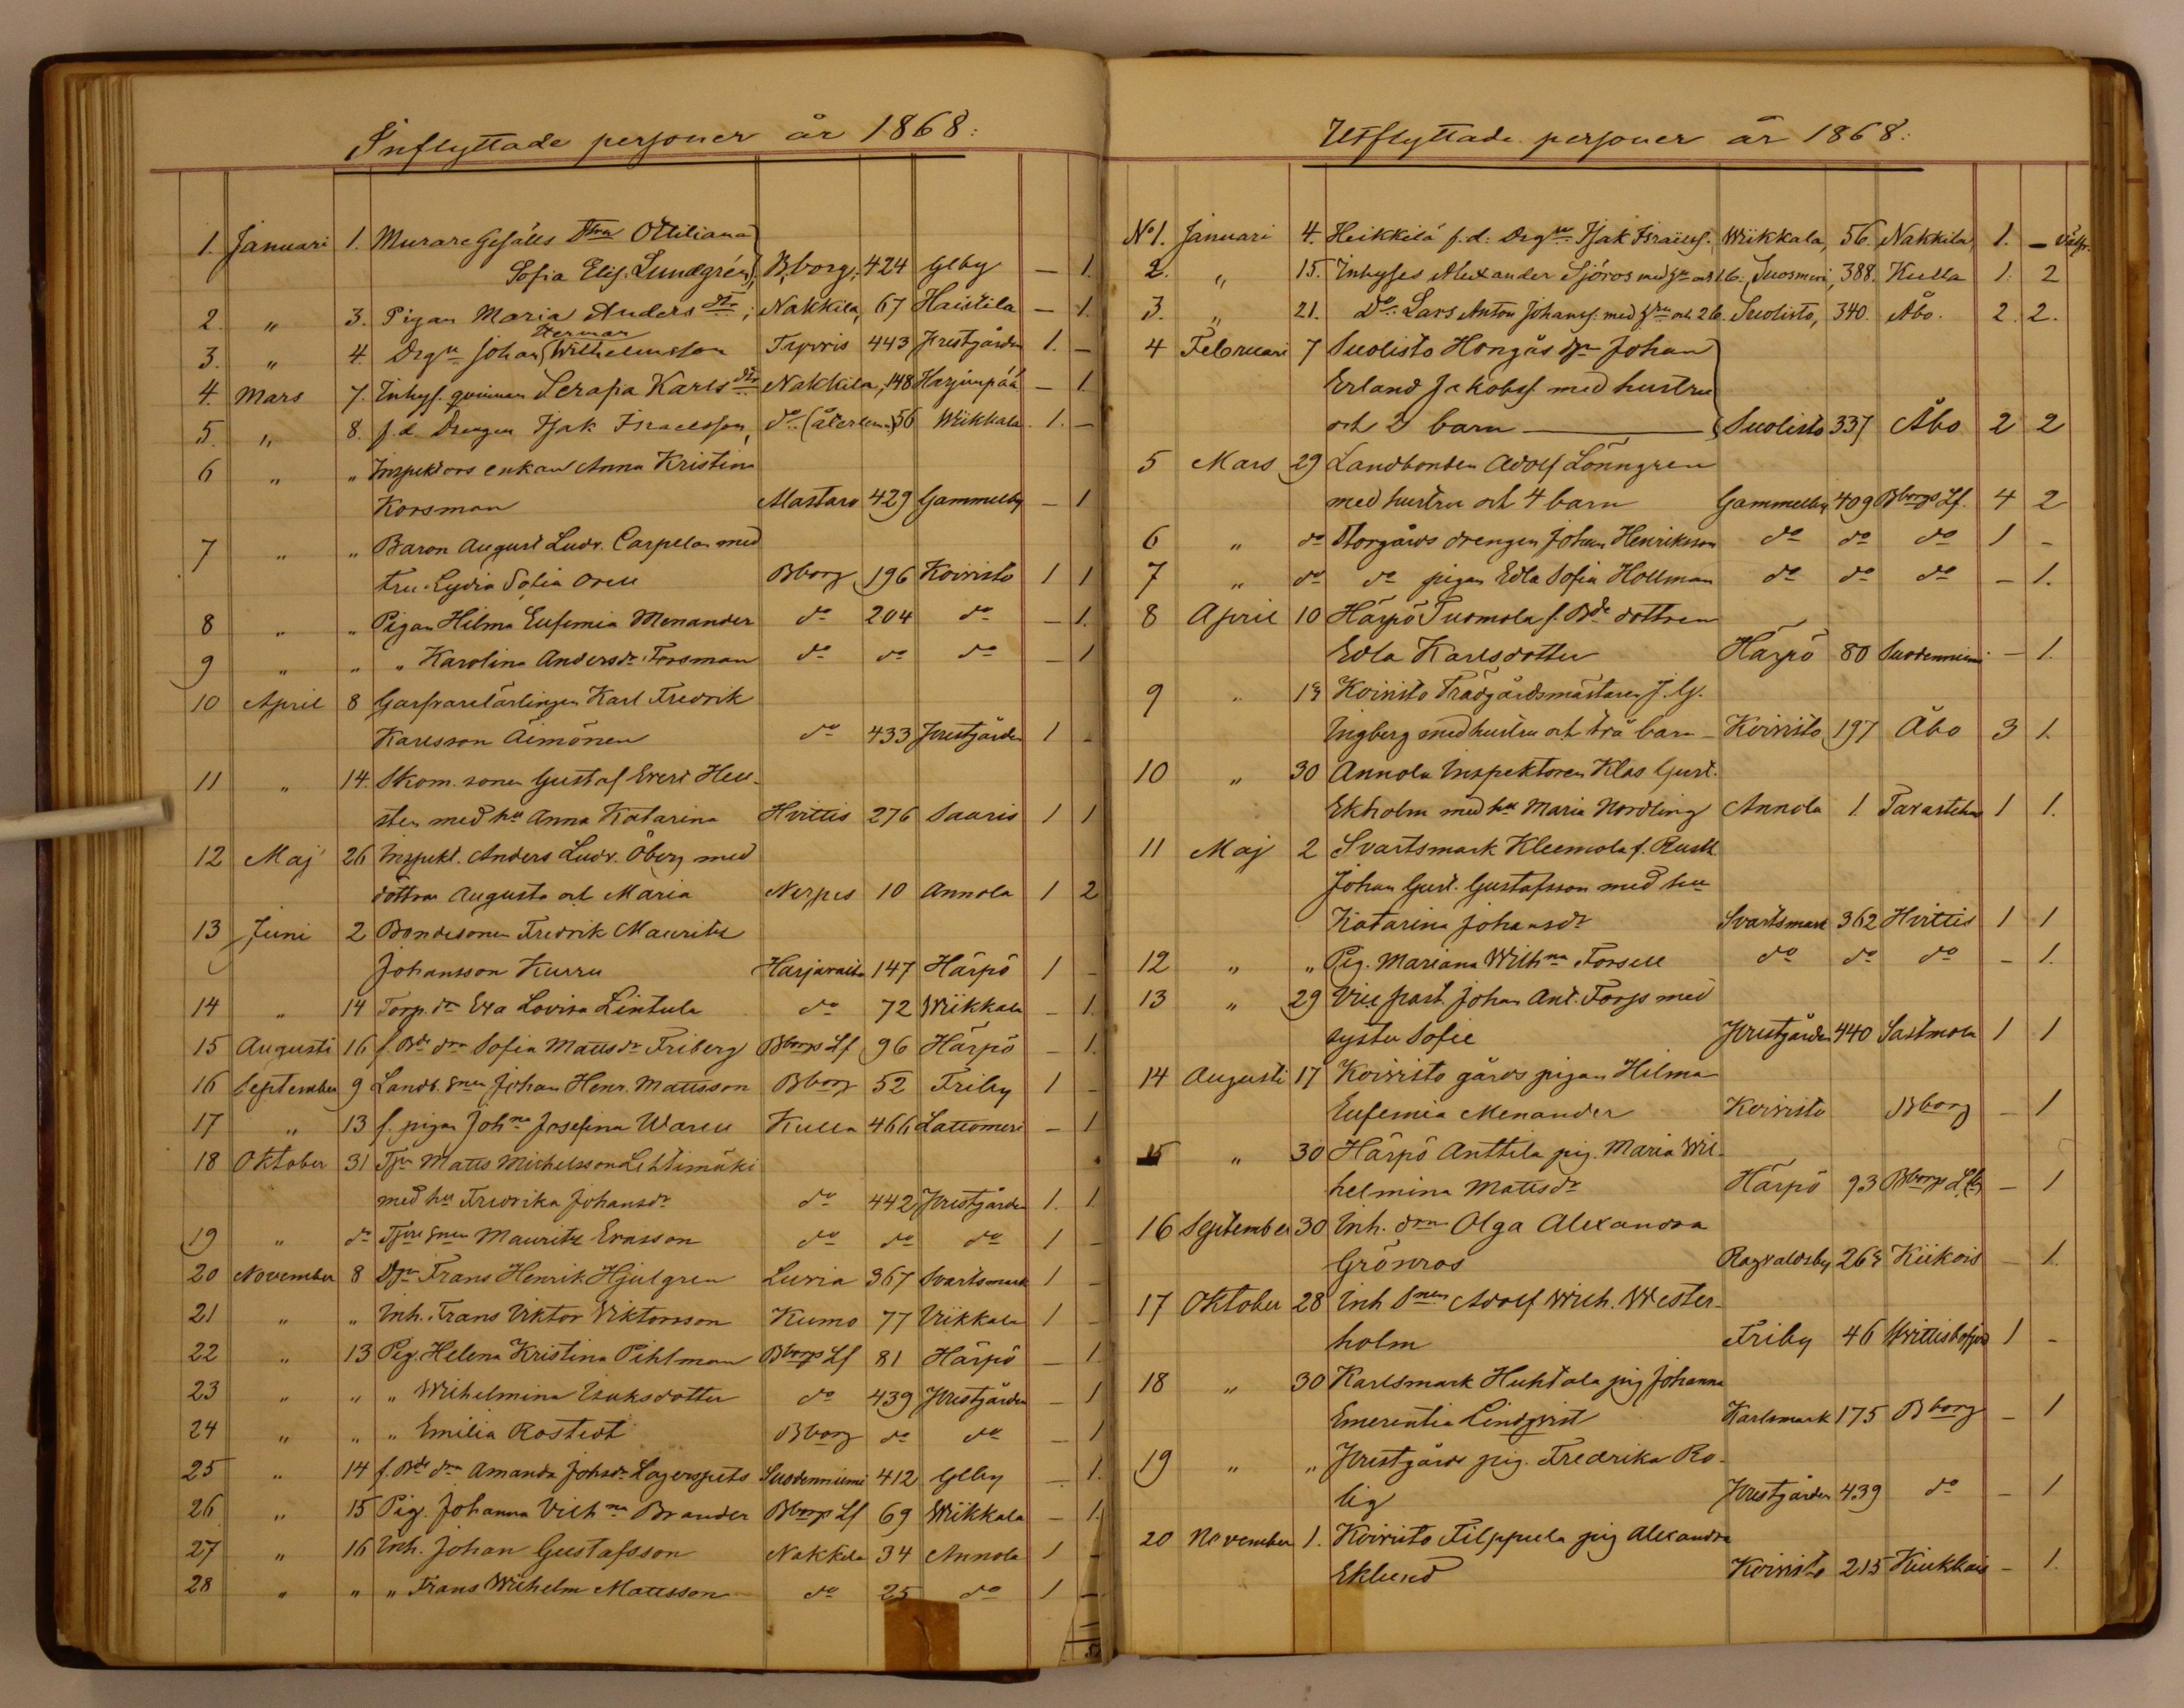 Inflyttade personer år 1868:
1. Januari 1. Murare Gesälls Dtrn Ottiliana
Sofia Elis. Lundgrén, B:borg, 424 Glby — 1.
2. " 3. Pigan Maria Anders dtr; Nakkila, 67 Haistila — 1.
Herman
3. " 4. Drgn Johan Wilhelmsson 443 Prestgården 1. —
4. Mars 7. Inhys. qvinnan Serafia Karls dtr Nakkila, 148 Harjunpää — 1
5. " 8. f.d. Drengen Isak Israelsson, do (återkom) 56 Wiikkala 1. —
6 " " Inspektors enkan Anna Kristina
Korsman Alastaro 429 Gammelby — 1
7 " " Baron August Ludv. Carpelan med
fru Lydia Sofia Orell Bborg 196 Koivisto 1 1
8 " " Pigan Hilma Eufemia Menander do 204 do — 1.
9 " " " Karolina Andersdr Forsman do do do — 1
10 April 8 Garfvarelärlingen Karl Fredrik
Karlsson Äimönen do 433 Prestgården 1 -
11 " 14. Skom. sonen Gustaf Evert Hell-
sten med hu Anna Katarina Hvittis 276 Saaris 1 1
12 Maj 26 Inspekt. Anders Ludv. Öberg med
döttrar Augusta och Maria Nerpes 10 Annola 1 2
13 Juni 2 Bondesonen Fredrik Mauritz
Johansson Kurru Harjavalta 147 Härpö 1 -
14 " 14 Torp. dr Eva Lovisa Lintula do 72 Wiikkala - 1.
15 Augusti 16 f. Bde drn Sofia Mattsdr Friberg Bborgs Lf 96 Härpö - 1.
16 September 9 Landb. snen Johan Henr. Mattsson Bborg 52 Friby 1 -
17 " 13 f. pigan Johna Josefina Warell Kulla 466 Lattomeri - 1
18 Oktober 31 Matts Michelsson Lehtimäki
med hu Fredrika Johansdr do 442 Prestgården 1. 1.
19 " do snen Mauritz Ersson do do do 1 -
20 November 8 Dgn Frans Henrik Hjulgren Luvia 367 Svartsmark 1 -
21 " " Inh. Frans Viktor Viktorsson Kumo 77 Viikkala 1 -
22 " 13 Pig. Helena Kristina Pihlman Bborgs Lf 81 Härpö - 1
23 " " " Wilhelmina Isaksdotter do 439 Prestgården - 1
24 " " " Emilia Rostedt Bborg do do - 1
25 " 14 f. Bde drn Amanda Johsdr Lagerspets Suodenniemi 412 Glby - 1.
26 " 15 Pig. Johanna Vilhna Brander Bborgs Lf 69 Wiikkala - 1.
27 " 16 Inh. Johan Gustafsson Nakkila 34 Annola 1 -
28 " " " Frans Wilhelm Mattsson do 25 do 1 -
Utflyttade personer år 1868:
No 1. Januari 4. Heikkilä f.d. Drgn Isak Israelss. Wiikkala, 56. Nakkila, 1. —
2. " 15. Inhyses Alexander Sjöros med hu och 1 b. Suosmeri, 388. Kulla 1. 2
3. " 21. Do Lars Anton Johanss. med hru och 2 b. Suolisto, 340. Åbo. 2. 2.
4 Februari 7 Suolisto Hongås dgn Johan
Erland Jakobss. med hustru
och 2 barn — Suolisto 337 Åbo 2 2
5 Mars 29 Landbonden Adolf Lönngren
med hustru och 4 barn Gammelby 409 Bborgs Lf. 4 2
6 " do Storgårds drengen Johan Henriksson do do do 1 -
7 " do do pigan Edla Sofia Hollman do do do - 1.
8 April 10 Härpö Tuomola f. Bde dottren
Edla Karlsdotter Härpö 80 Suodenniemi - 1.
9 " 19 Koivisto Trädgårdsmästaren J. G.
Ingberg med hustru och två barn - Koivisto 197 Åbo 3 1.
10 " 30 Annola Inspektoren Klas Gust.
Ekholm med hu Maria Nordling Annola 1 Tavastehus 1 1.
11 Maj 2 Svartsmark Kleemola f. Rusth
Johan Gust. Gustafsson med hu
Katarina Johansdr Svartsmark 362 Hvittis 1 1
12 " " Pig. Mariana Wilhna Forsell do do do - 1.
13 " 29 Vice past. Johan Ant. Forss med
syster Sofie Prestgården 440 Sastmola 1 1
14 Augusti 17 Koivisto gårds pigan Hilma
Eufemia Menander Koivisto Bborg - 1
15 " 30 Härpö Anttila pig. Maria Wil-
helmina Mattsdr Härpö 93 Bborgs Lf - 1
16 September 30 Inh. drn Olga Alexandra
Grönroos Ragvaldsby 269 Kiikois - 1.
17 Oktober 28 Inh snen Adolf Wilh. Wester-
holm Friby 46 Wittisbofjerd 1 -
18 " 30 Karlsmark Huhtala pig Johanna
Emerentia Lindqvist Karlsmark 175 Bborg - 1
19 " " Prestgårds pig. Fredrika Ro-
lig Prestgården 439 do - 1
20 November 1. Koivisto Filppula pig Alexandra
Eklund Koivisto 215 Kiukkais - 1.